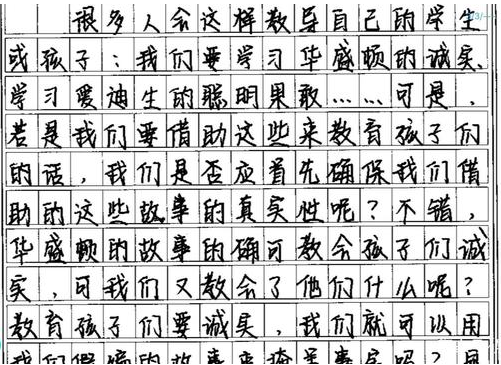 很多人会这样教导自己的学生
或孩子：我们要学习华盛顿的诚实、
学习爱迪生的聪明果敢……可是，
若是我们要借助这些来教育孩子们
的话，我们是否应首先确保我们借
助的这些故事的真实性呢？不错，
华盛顿的故事的确可教会孩子们诚
实，可我们又教会了他们什么呢？
教育孩子们要诚实，我们就可以用
我们假编的故事来掩盖事实吗？